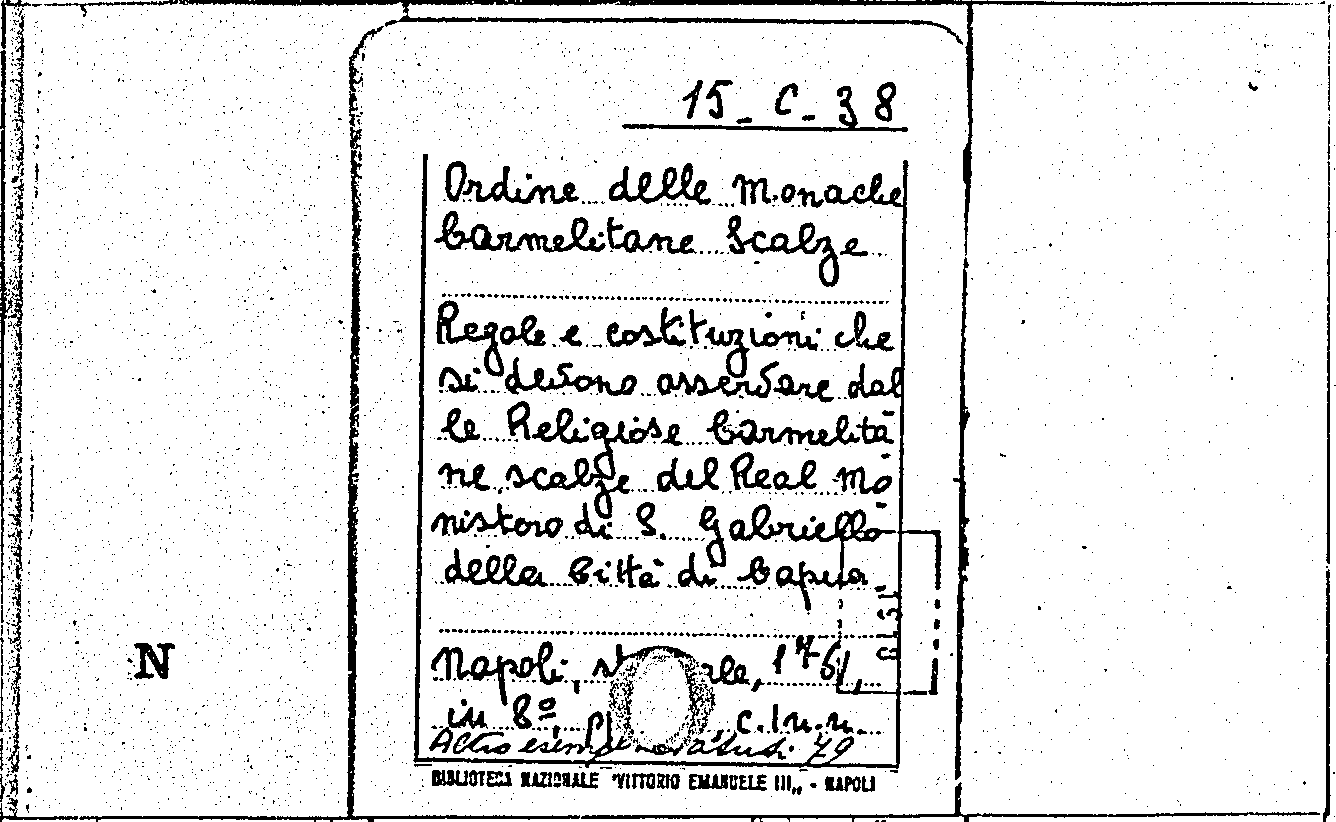 15_ C_ 38
Ordine delle Monache
Carmelitane Scalze
Regole e costituzioni che
si devono osservare dal
le Religiose Carmelita
ne scalze del Real Mo
nistero di S. Gabriello
della Città di Capua
Napoli, 1761,
in 8º, c.1n.n.
Altro esemp. 79
BIBLIOTECA NAZIONALE "VITTORIO EMANUELE III„ - NAPOLI
N